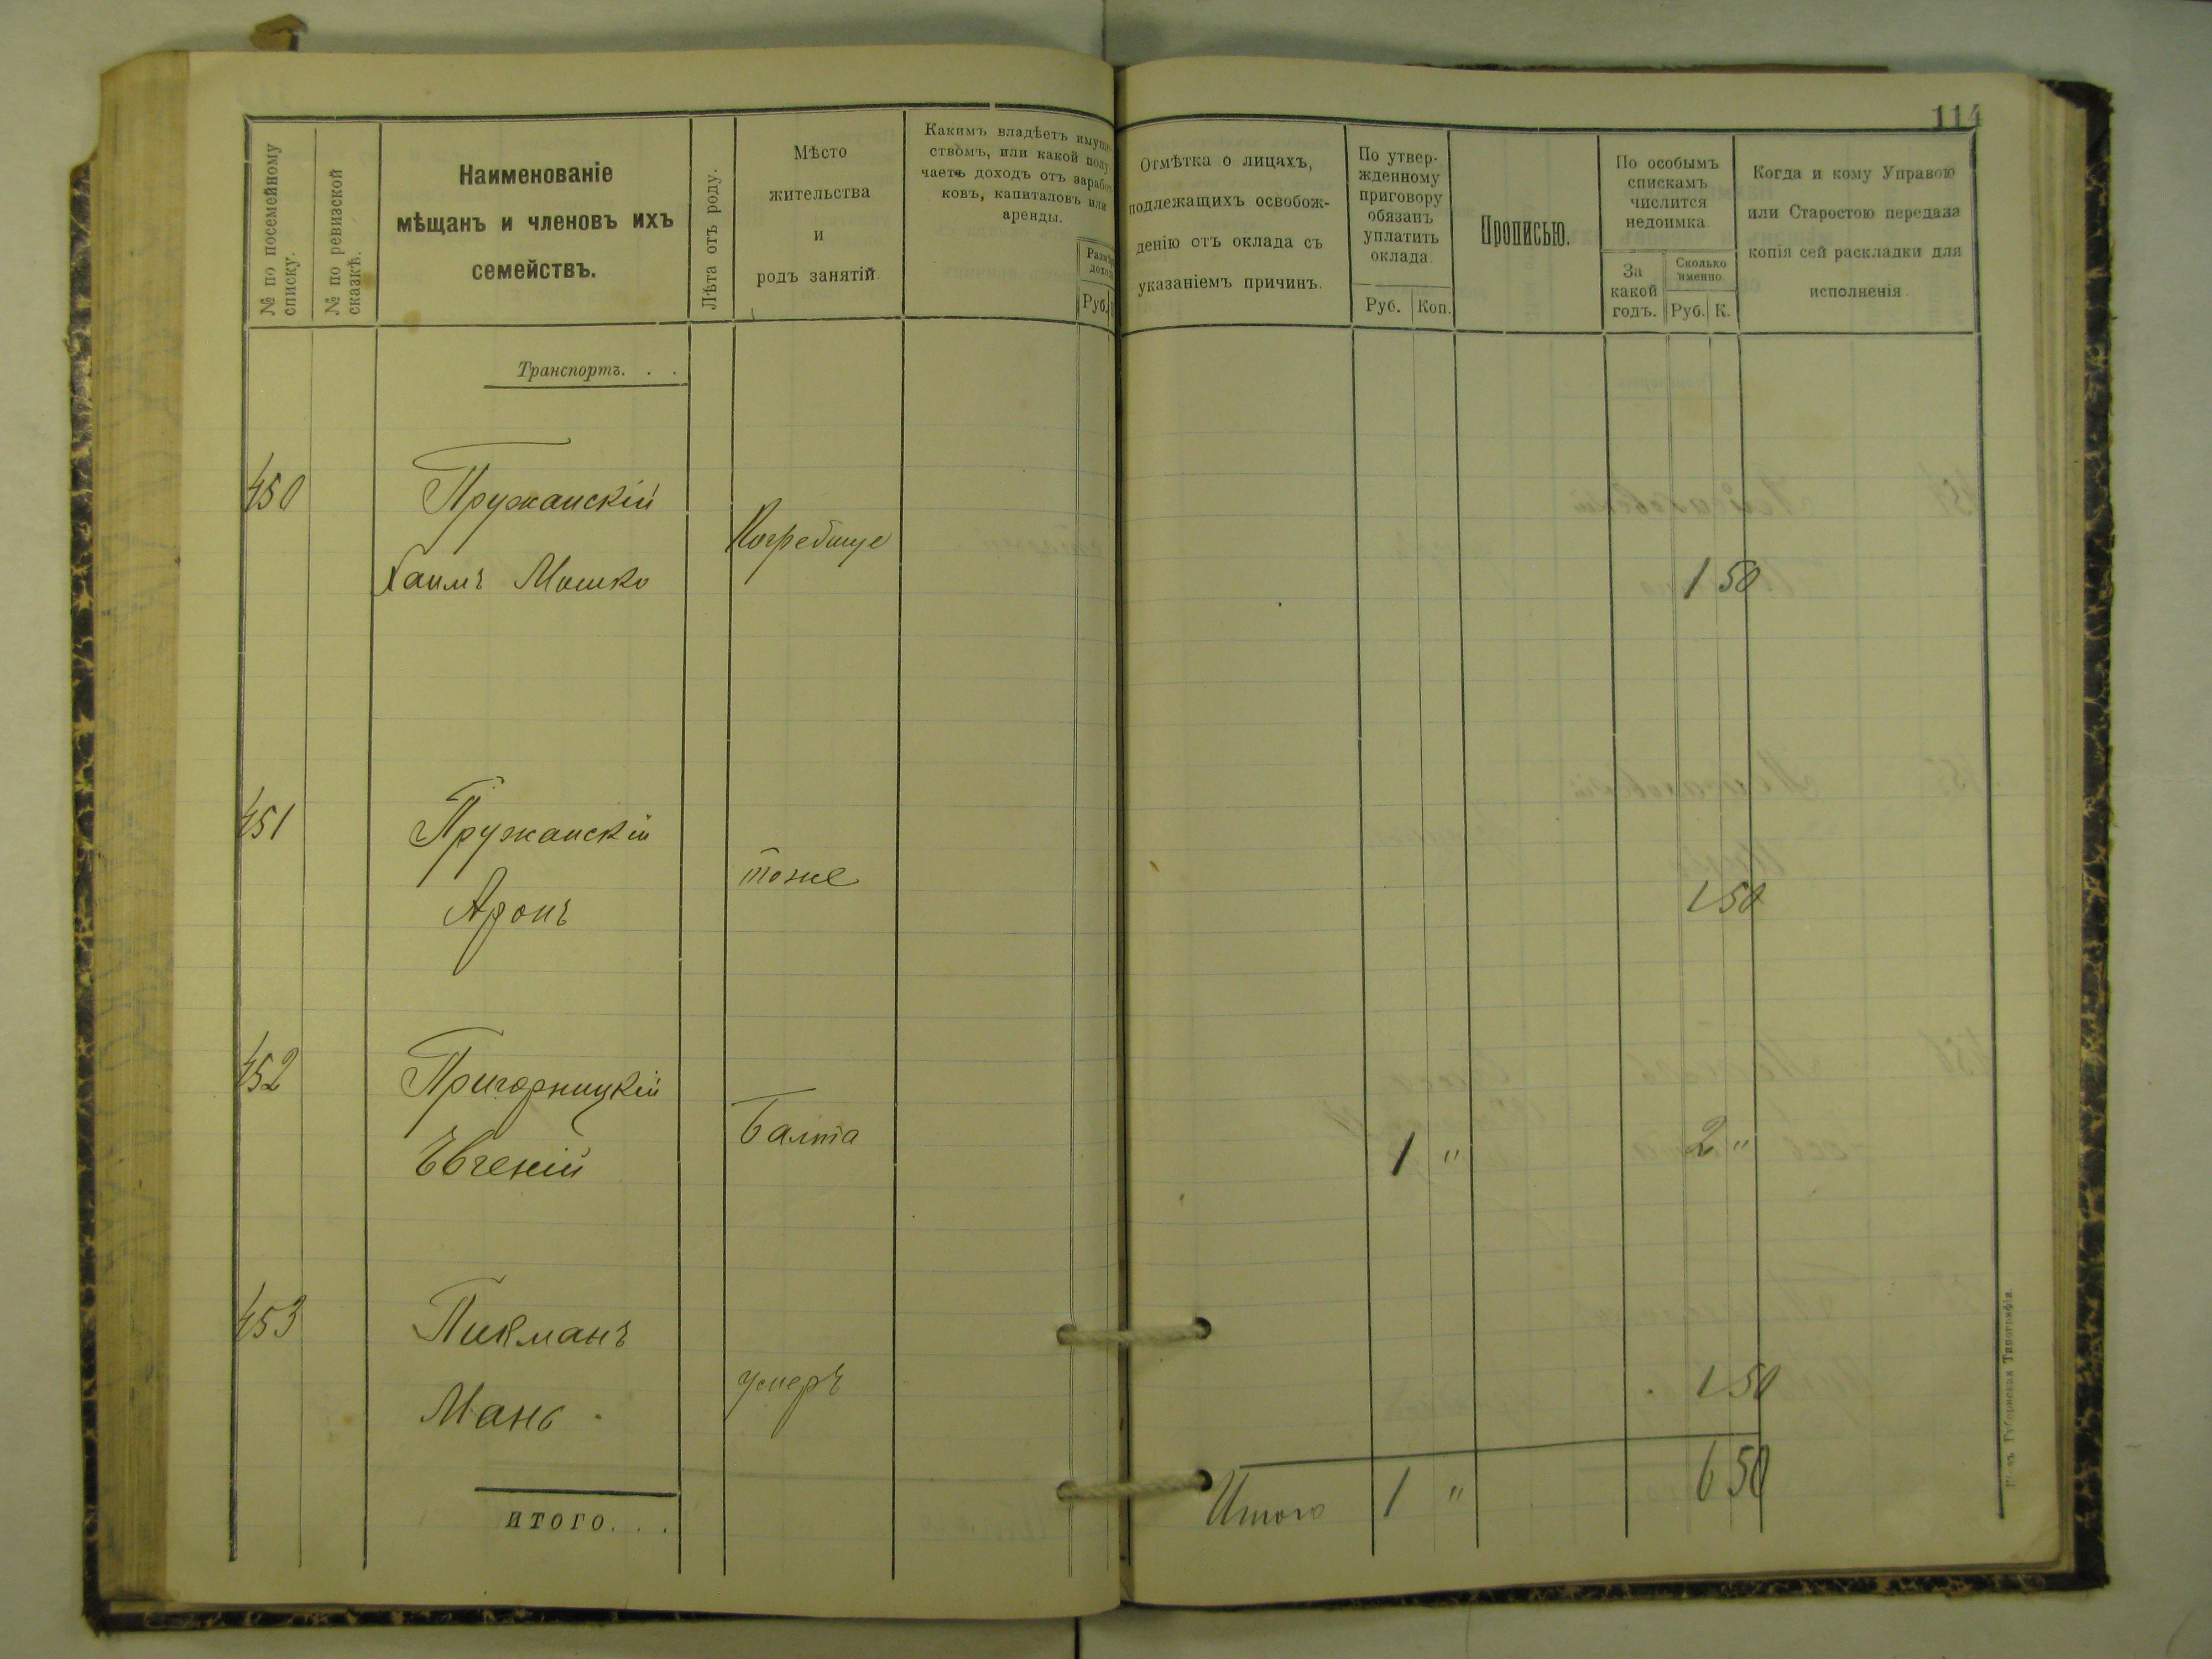 114
№ по посемейному списку.
№ по ревизской сказкѣ.
Наименованіе
мѣщанъ и членовъ ихъ
семействъ.
Лѣта отъ роду.
Мѣсто
жительства
и
родъ занятій.
Какимъ владѣетъ имуще-
ствомъ, или какой полу-
чаетъ доходъ отъ зарабо
ковъ, капиталовъ или
аренды.
Руб.
Отмѣтка о лицахъ,
подлежащихъ освобож-
денію отъ оклада съ
указаніемъ причинъ.
По утвер-
жденному
приговору
обязанъ
уплатить
оклада.
Руб. Коп.
Прописью.
По особымъ
спискамъ
числится
недоимка.
За
какой
годъ.
Сколько
именно.
Руб. К.
Когда и кому Управою
или Старостою передана
копія сей раскладки для
исполненія.
Транспортъ. . .
450 Пружанскій
Погребище
Хаимъ Мошко 1 50
451 Пружанскій
тоже
Аронъ 1 50
452 Пригорницкій
Балта
Евгеній 1 " 2 "
453 Пикманъ
умеръ 1 50
Мань
Итого 1 " 6 50
итого. . .
Губернская Типографія.